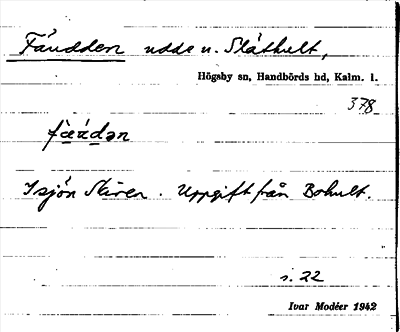 Fåudden udde u. Slåthult,
Högsby sn, Handbörds hd, Kalm. l.
378
I sjön Skiren. Uppgift från Bohult.
s. 22
Ivar Modéer 1942